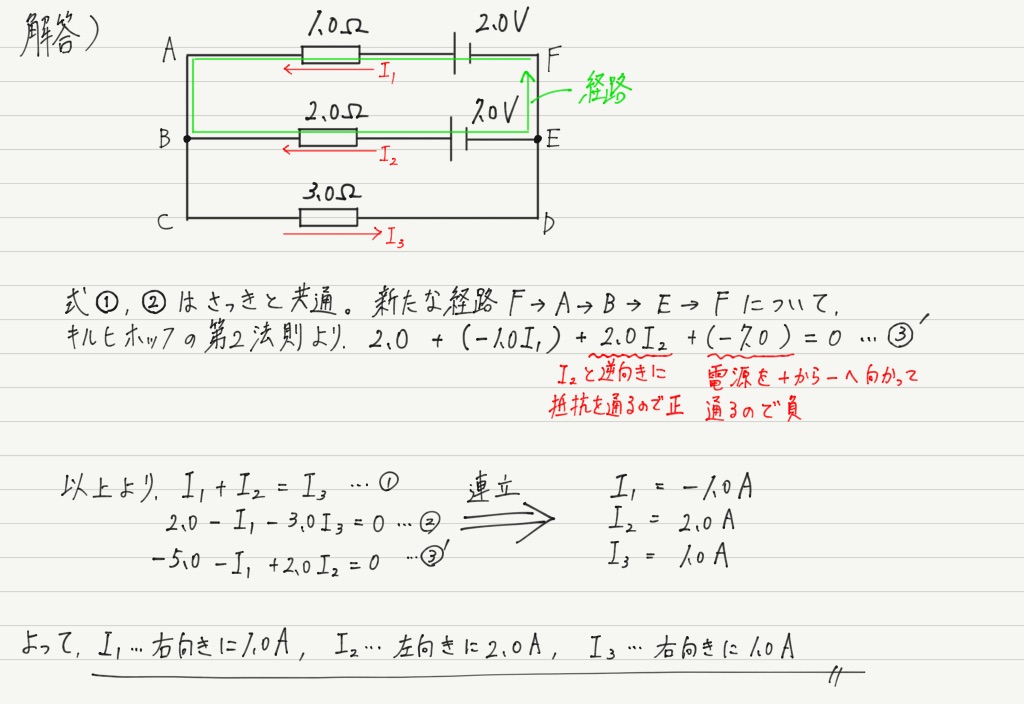 解答)
1.0Ω 2.0V
A F
I₁
経路
2.0Ω 7.0V
B E
I₂
3.0Ω
C D
I₃
式①,②はさっきと共通。新たな経路 F→A→B→E→F について,
キルヒホッフの第2法則より. 2.0 + (-1.0I₁) + 2.0I₂ + (-7.0) = 0 … ③′
I₂と逆向きに 電源を+から-へ向かって
抵抗を通るので正 通るので負
以上より. I₁ + I₂ = I₃ … ① 連立 I₁ = -1.0A
2.0 - I₁ - 3.0I₃ = 0 … ② I₂ = 2.0A
-5.0 - I₁ + 2.0I₂ = 0 … ③′ I₃ = 1.0A
よって, I₁…右向きに1.0A, I₂…左向きに2.0A, I₃…右向きに1.0A